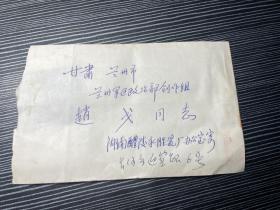 甘肃 兰州市
兰州军区政治部创作组
趙戈同志
湖南醴陵永胜瓷厂办公室寄